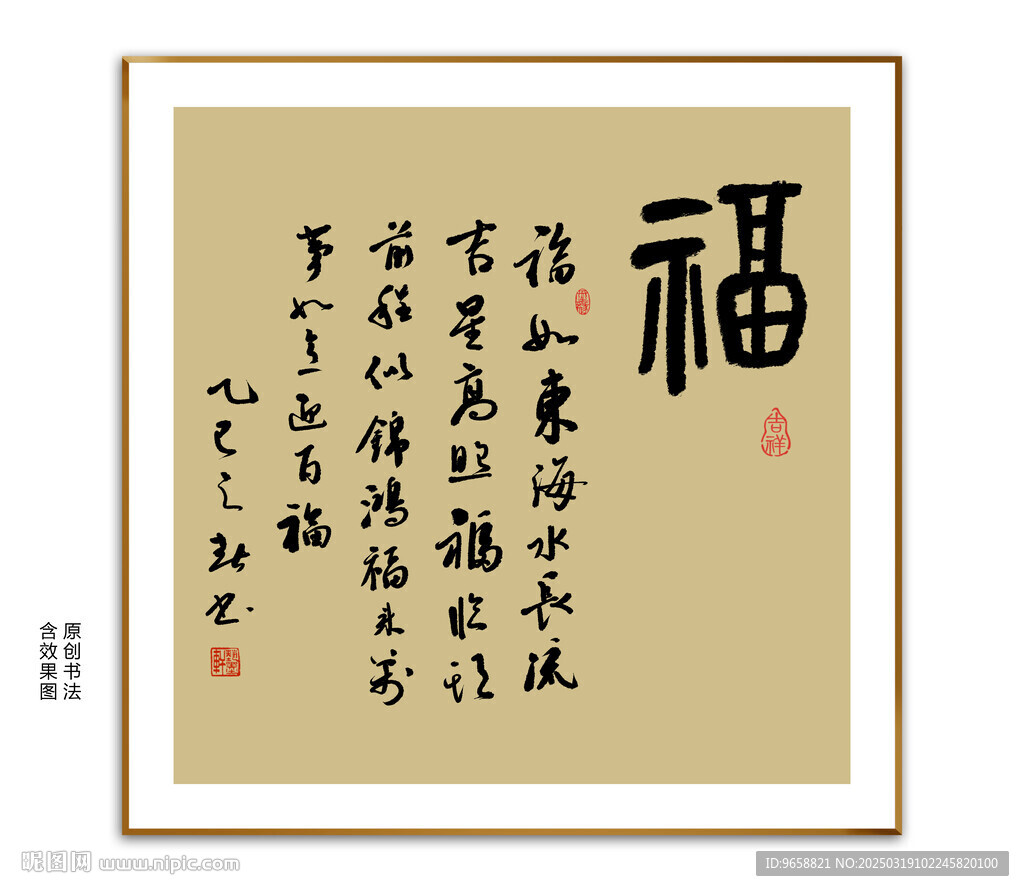 福
吉祥
福如東海水長流
吉星高照福臨頭
前程似錦鴻福来萬
事如意迎百福
乙巳之春书
原创书法
含效果图
昵图网 www.nipic.com
ID:9658821 NO:20250319102245820100